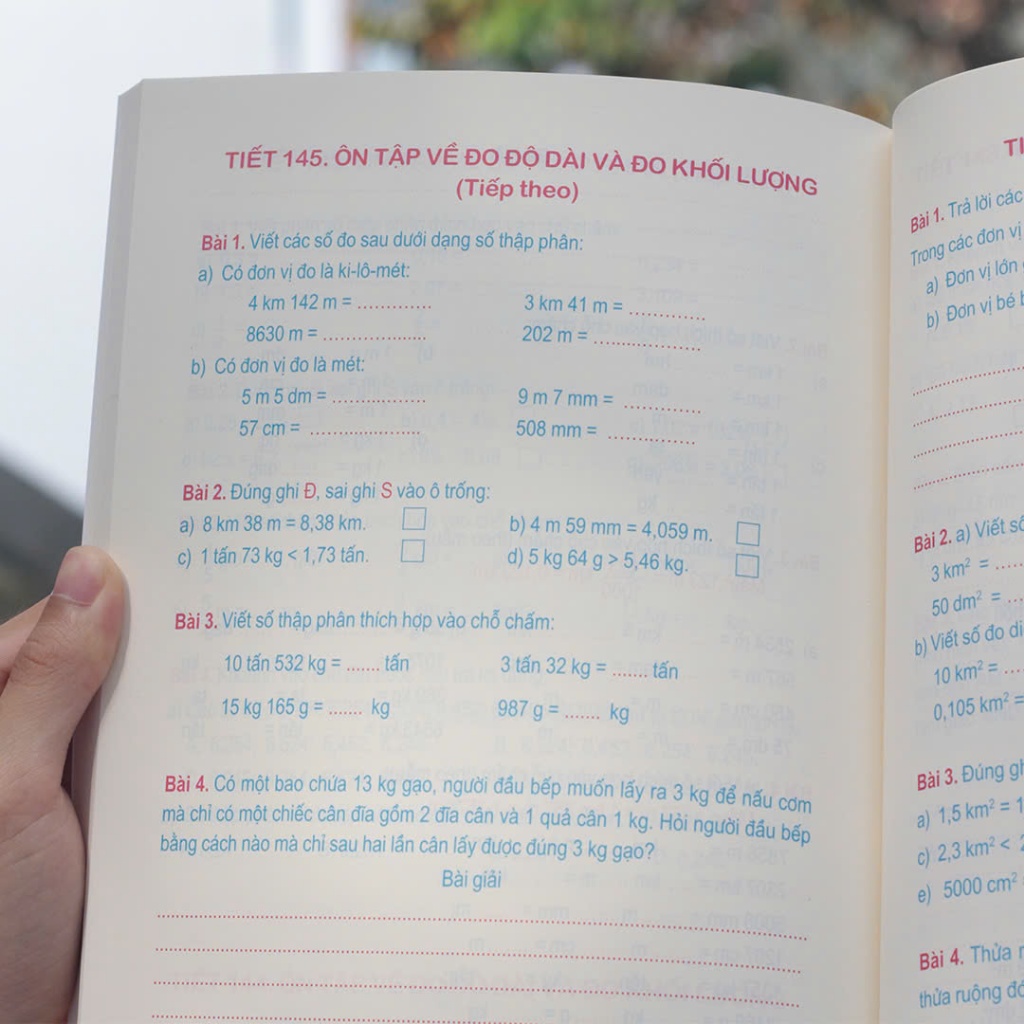 TIẾT 145. ÔN TẬP VỀ ĐO ĐỘ DÀI VÀ ĐO KHỐI LƯỢNG
(Tiếp theo)
Bài 1. Viết các số đo sau dưới dạng số thập phân:
a) Có đơn vị đo là ki-lô-mét:
4 km 142 m = ............. 3 km 41 m = .............
8630 m = ................. 202 m = ..................
b) Có đơn vị đo là mét:
5 m 5 dm = ................ 9 m 7 mm = .............
57 cm = ..................... 508 mm = ...............
Bài 2. Đúng ghi Đ, sai ghi S vào ô trống:
a) 8 km 38 m = 8,38 km. b) 4 m 59 mm = 4,059 m.
c) 1 tấn 73 kg < 1,73 tấn. d) 5 kg 64 g > 5,46 kg.
Bài 3. Viết số thập phân thích hợp vào chỗ chấm:
10 tấn 532 kg = ....... tấn 3 tấn 32 kg = ....... tấn
15 kg 165 g = ....... kg 987 g = ....... kg
Bài 4. Có một bao chứa 13 kg gạo, người đầu bếp muốn lấy ra 3 kg để nấu cơm
mà chỉ có một chiếc cân đĩa gồm 2 đĩa cân và 1 quả cân 1 kg. Hỏi người đầu bếp
bằng cách nào mà chỉ sau hai lần cân lấy được đúng 3 kg gạo?
Bài giải
TI
Bài 1. Trả lời các
Trong các đơn vị
a) Đơn vị lớn
b) Đơn vị bé
Bài 2. a) Viết số
3 km² = .....
50 dm² = ...
b) Viết số đo di
10 km² = ....
0,105 km² =
Bài 3. Đúng gh
a) 1,5 km² = 1
c) 2,3 km² <
e) 5000 cm²
Bài 4. Thửa
thửa ruộng đó